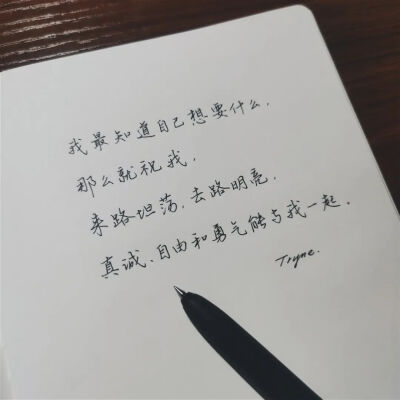 我最知道自己想要什么.
那么就祝我.
来路坦荡,去路明亮.
真诚、自由和勇气能与我一起.
Tryne.